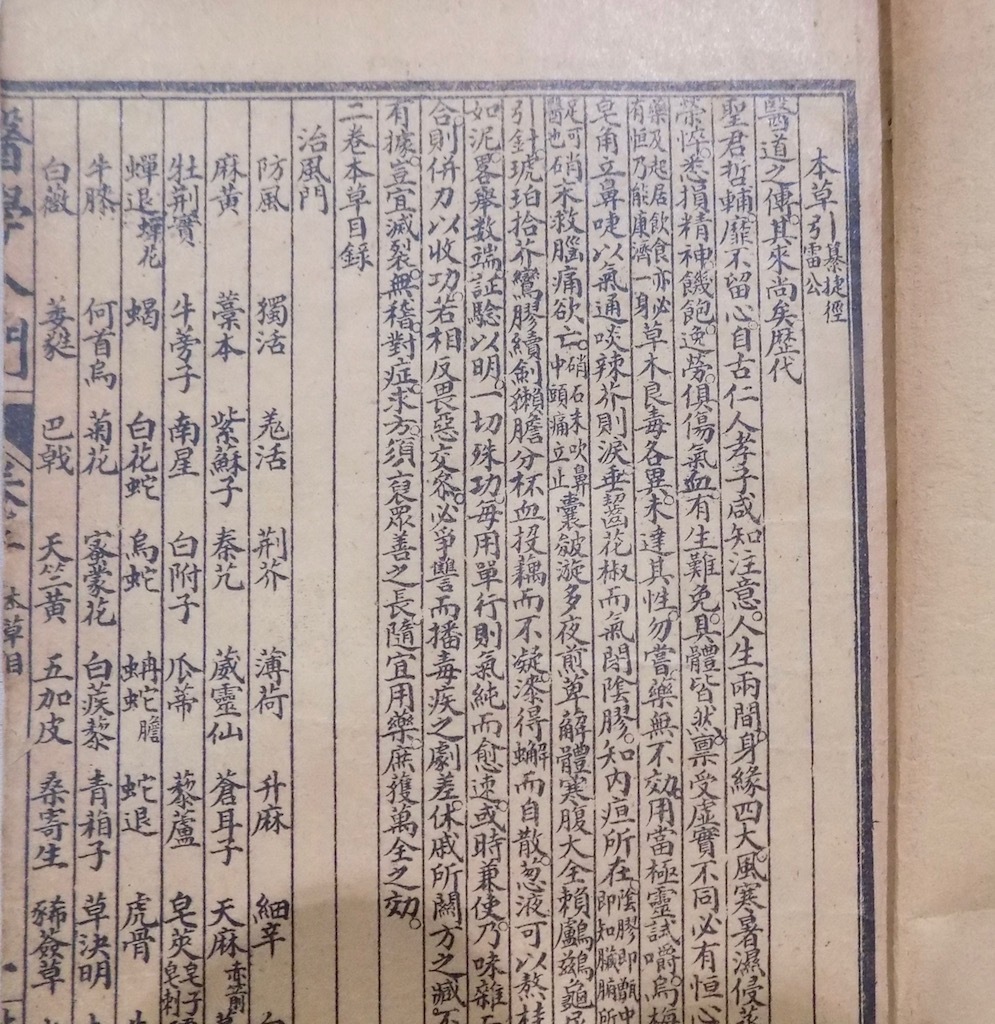 本草引 纂捷徑雷公
醫道之傳。其來尚矣歷代
聖君哲輔。靡不留心。自古仁人孝子。咸知注意。人生兩間。身緣四大。風寒暑濕侵
榮悴。悉損精神。饑飽。逸勞。俱傷氣血。有生難免。具體皆然。禀受虛實不同。必有恒心
藥及起居飲食亦必有恒乃能康濟一身 草木良毒各異。未達其性。勿嘗藥無不効。用當極靈。試嚼烏梅
皂角立鼻啑以氣通。啖辣芥則淚垂。囓花椒而氣閉。陰膠。知內疸所在 陰膠即甑中 即知臟腑所
足可醫也 硝末救腦痛欲亡。硝石末吹鼻中頭痛立止 囊皺漩多夜煎萆解。體寒腹大全賴鸕鷀。龜尿
引針。琥珀拾芥。鸞膠續劍。獺膽分杯。血投藕而不凝。漆得蠏而自散。葱液可以熬桂
如泥。畧舉数端。証驗以明。一切殊功。每用單行則氣純而愈速。或時兼使。乃味雜
合則併力以收功。若相反畏惡交參。必爭讐而播毒。疾之劇差。休戚所關。方之臧否
有據。豈宜滅裂。無稽。對症。求方。須裒眾善之長。隨宜用藥。庶獲萬全之効。
二卷本草目錄
治風門
防風 獨活 羌活 荆芥 薄荷 升麻 細辛 白
麻黃 藁本 紫蘇子 秦艽 葳靈仙 蒼耳子 天麻 赤箭
牡荆實 牛蒡子 南星 白附子 瓜蒂 藜蘆 皂莢 皂子皂刺
蟬退 蟬花 蝎 白花蛇 烏蛇 蚺蛇 膽 蛇退 虎骨
牛膝 何首烏 菊花 密蒙花 白蒺藜 青葙子 草決明
白薇 萎蕤 巴戟 天竺黃 五加皮 桑寄生 豨薟草
醫學入門 本草目